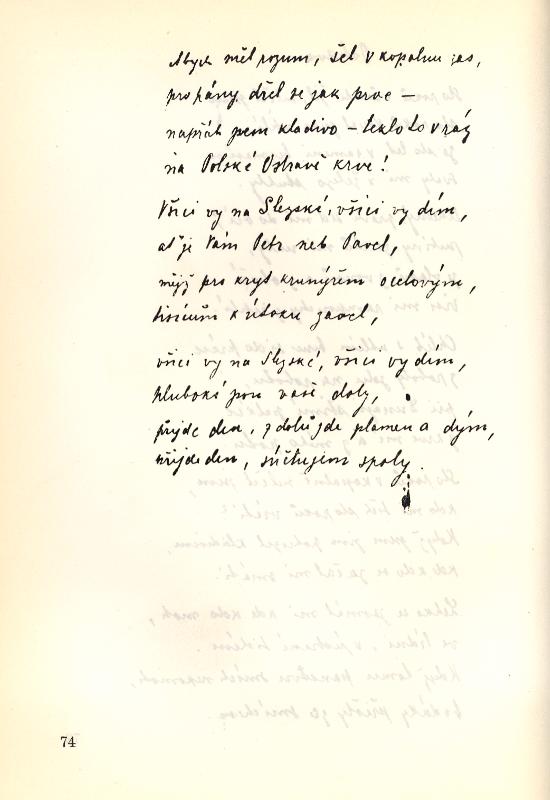 Abych měl rozum, šel v kopalnu zas,
pro pány dřel se jak prve —
napřáh jsem kladivo — teklo to v ráz
na Polské Ostravě krve!
Všici vy na Slezské, všici vy dím,
ať je Vám Petr neb Pavel,
mějž pro kryt krunýřem ocelovým,
tisícům k útoku zavel,
všici vy na Slezské, všici vy dím,
hluboké jsou vaše doly,
přijde den, z dolů jde plamen a dým,
přijde den, súčtujem spolu.
74